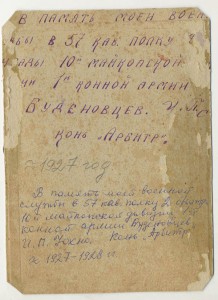 В ПАМЯТЬ МОЕЙ ВОЕН
БЫ В 57 КАВ. ПОЛКУ 2
10й МАЙКОПСКОЙ
ИИ 1й КОННОЙ АРМИИ
БУДЕНОВЦЕВ.
КОНЬ „АРБИТР".
1927 год
В память моей военной
службы в 57 кав. полку 2
10й майкопской дивизии 1й
конной армии Буденовцев
И.П. Конь „Арбитр"
1927-1928 г.